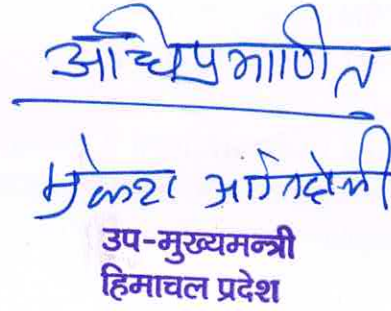 अधिप्रमाणित
मुकेश अग्निहोत्री
उप-मुख्यमन्त्री
हिमाचल प्रदेश